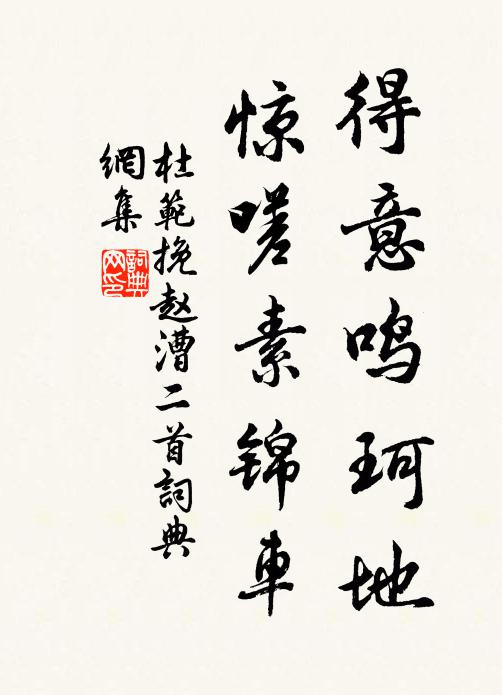 得意鸣珂地
惊嗟素锦車
杜範挽赵漕二首詞典
網集
詞典网印